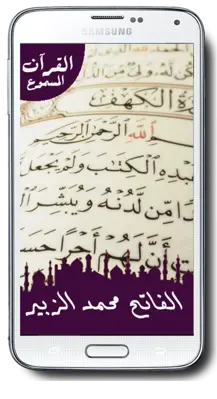 SAMSUNG
القرآن
المسموع
سورة الكهف
بسم الله الرحمن الرحيم
عبده الكتب ولم يجعل
دا من لدنه ويبشر
أن لهم أجرا حسنا
الفاتح محمد الزبير